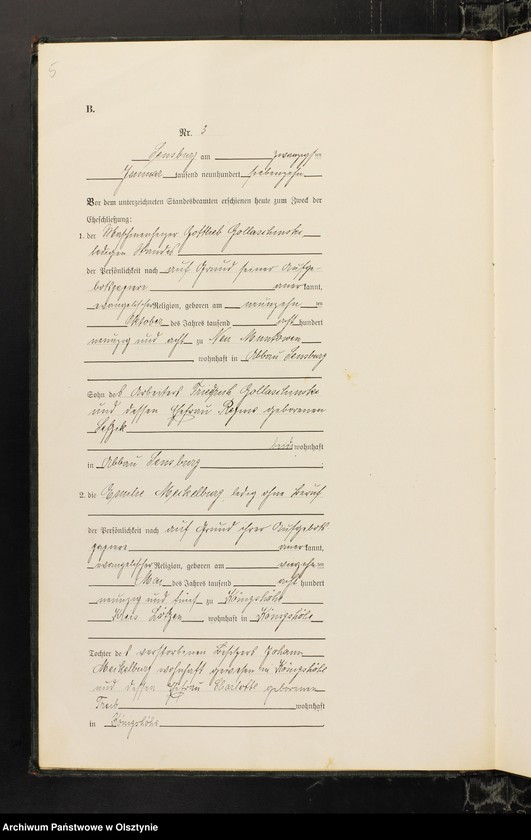 5
B.
Nr. 3
Sensburg am zwanzigsten
Januar tausend neunhundert siebenzehn
Vor dem unterzeichneten Standesbeamten erschienen heute zum Zweck der
Eheschließung:
1. der Gottlieb
ledigen Standes
der Persönlichkeit nach auf Grund seiner Aufge-
botspapiere anerkannt,
evangelischer Religion, geboren am neunzehnten
Oktober des Jahres tausend acht hundert
neunzig und acht zu Neu Muntowen
, wohnhaft in Abbau Sensburg
Sohn des Arbeiters Friedrich
und dessen Ehefrau geborenen
wohnhaft
in Abbau Sensburg
2. die Emilie Meikelburg ledig ohne Beruf
der Persönlichkeit nach auf Grund ihrer Aufgebots
papiere anerkannt,
evangelischer Religion, geboren am
Mai des Jahres tausend acht hundert
neunzig und fünf zu Königshöhe
Kreis Lötzen wohnhaft in Königshöhe
Tochter des verstorbenen Besitzers Johann
Meikelburg wohnhaft gewesen in Königshöhe
und dessen Ehefrau Charlotte geborenen
wohnhaft
in Königshöhe
Archiwum Państwowe w Olsztynie